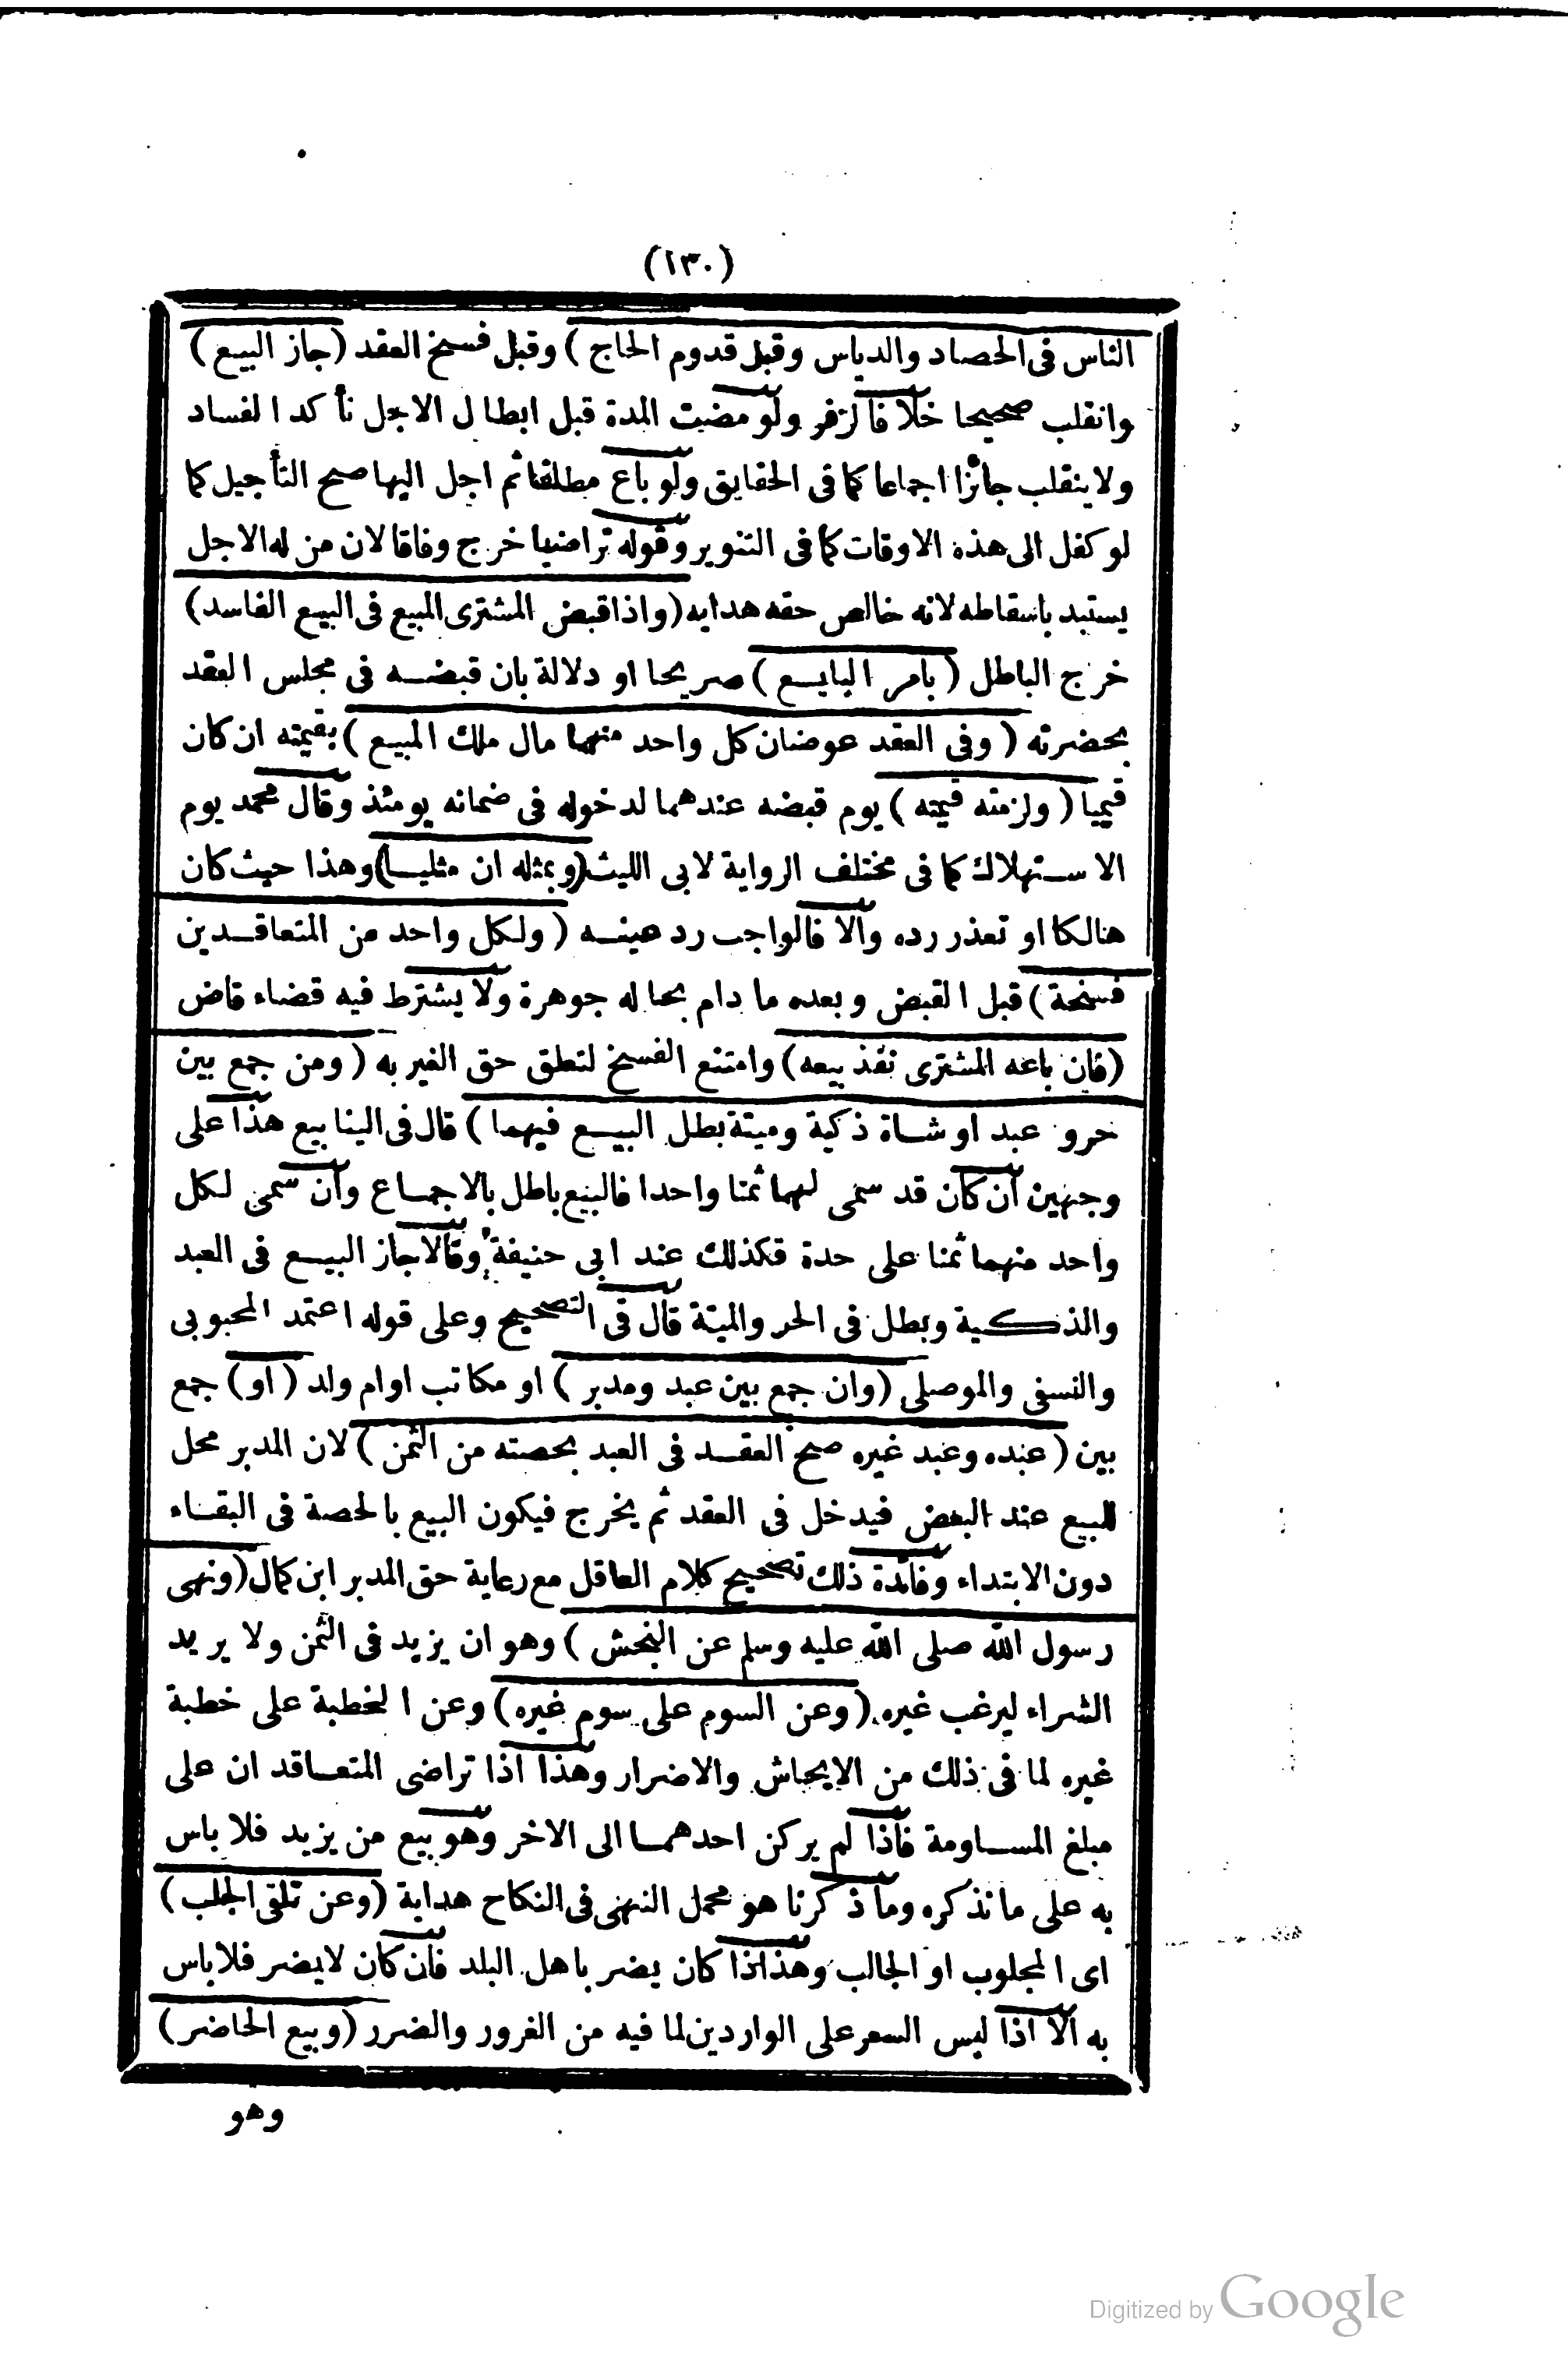 (١٣٠)
الناس فى الحصاد والدياس وقبل قدوم الحاج ) وقبل فسخ العقد ( جاز البيع )
وانقلب صحيحا خلافا لزفر ولو مضت المدة قبل ابطال الاجل تأكد الفساد
ولا ينقلب جائزا اجماعا كما فى الحقايق ولو باع مطلقا ثم اجل اليها صح التأجيل كما
لو كفل الى هذه الاوقات كما فى التنوير وقوله تراضيا خرج وفاقا لان من له الاجل
يستبد باسقاطه لانه خالص حقه هدايه ( واذا قبض المشترى المبيع فى البيع الفاسد )
خرج الباطل ( بامر البايع ) صريحا او دلالة بان قبضه فى مجلس العقد
بحضرته ( وفى العقد عوضان كل واحد منهما مال ملك المبيع ) بقيمته ان كان
قيميا ( ولزمته قيمته ) يوم قبضه عندهما لدخوله فى ضمانه يومئذ وقال محمد يوم
الاستهلاك كما فى مختلف الرواية لابى الليث (وبمثله ان مثليا) وهذا حيث كان
هالكا او تعذر رده والا فالواجب رد عينه ( ولكل واحد من المتعاقدين
فسخه ) قبل القبض وبعده ما دام بحاله جوهرة ولا يشترط فيه قضاء قاض
(فان باعه المشترى نفذ بيعه) وامتنع الفسخ لتعلق حق الغير به ( ومن جمع بين
حر و عبد او شاة ذكية وميتة بطل البيع فيهما ) قال فى الينابيع هذا على
وجهين ان كان قد سمى لهما ثمنا واحدا فالبيع باطل بالاجماع وان سمى لكل
واحد منهما ثمنا على حدة فكذلك عند ابى حنيفة وقالا جاز البيع فى العبد
والذكية وبطل فى الحر والميتة قال فى التصحيح وعلى قوله اعتمد المحبوبى
والنسفى والموصلى ( وان جمع بين عبد ومدبر ) او مكاتب او ام ولد ( او ) جمع
بين ( عبده وعبد غيره صح العقد فى العبد بحصته من الثمن ) لان المدبر محل
للبيع عند البعض فيدخل فى العقد ثم يخرج فيكون البيع بالحصة فى البقاء
دون الابتداء وفائدة ذلك تصحيح كلام العاقل مع رعاية حق المدبر ابن كمال (ونهى
رسول الله صلى الله عليه وسلم عن النجش ) وهو ان يزيد فى الثمن ولا يريد
الشراء ليرغب غيره ( وعن السوم على سوم غيره ) وعن الخطبة على خطبة
غيره لما فى ذلك من الايحاش والاضرار وهذا اذا تراضى المتعاقدان على
مبلغ المساومة فاذا لم يركن احدهما الى الاخر وهو بيع من يزيد فلا باس
به على ما نذكره وما ذكرنا هو محمل النهى فى النكاح هداية ( وعن تلقى الجلب )
اى المجلوب او الجالب وهذا اذا كان يضر باهل البلد فان كان لا يضر فلا باس
به الا اذا لبس السعر على الواردين لما فيه من الغرور والضرر ( وبيع الحاضر )
وهو
Digitized by Google